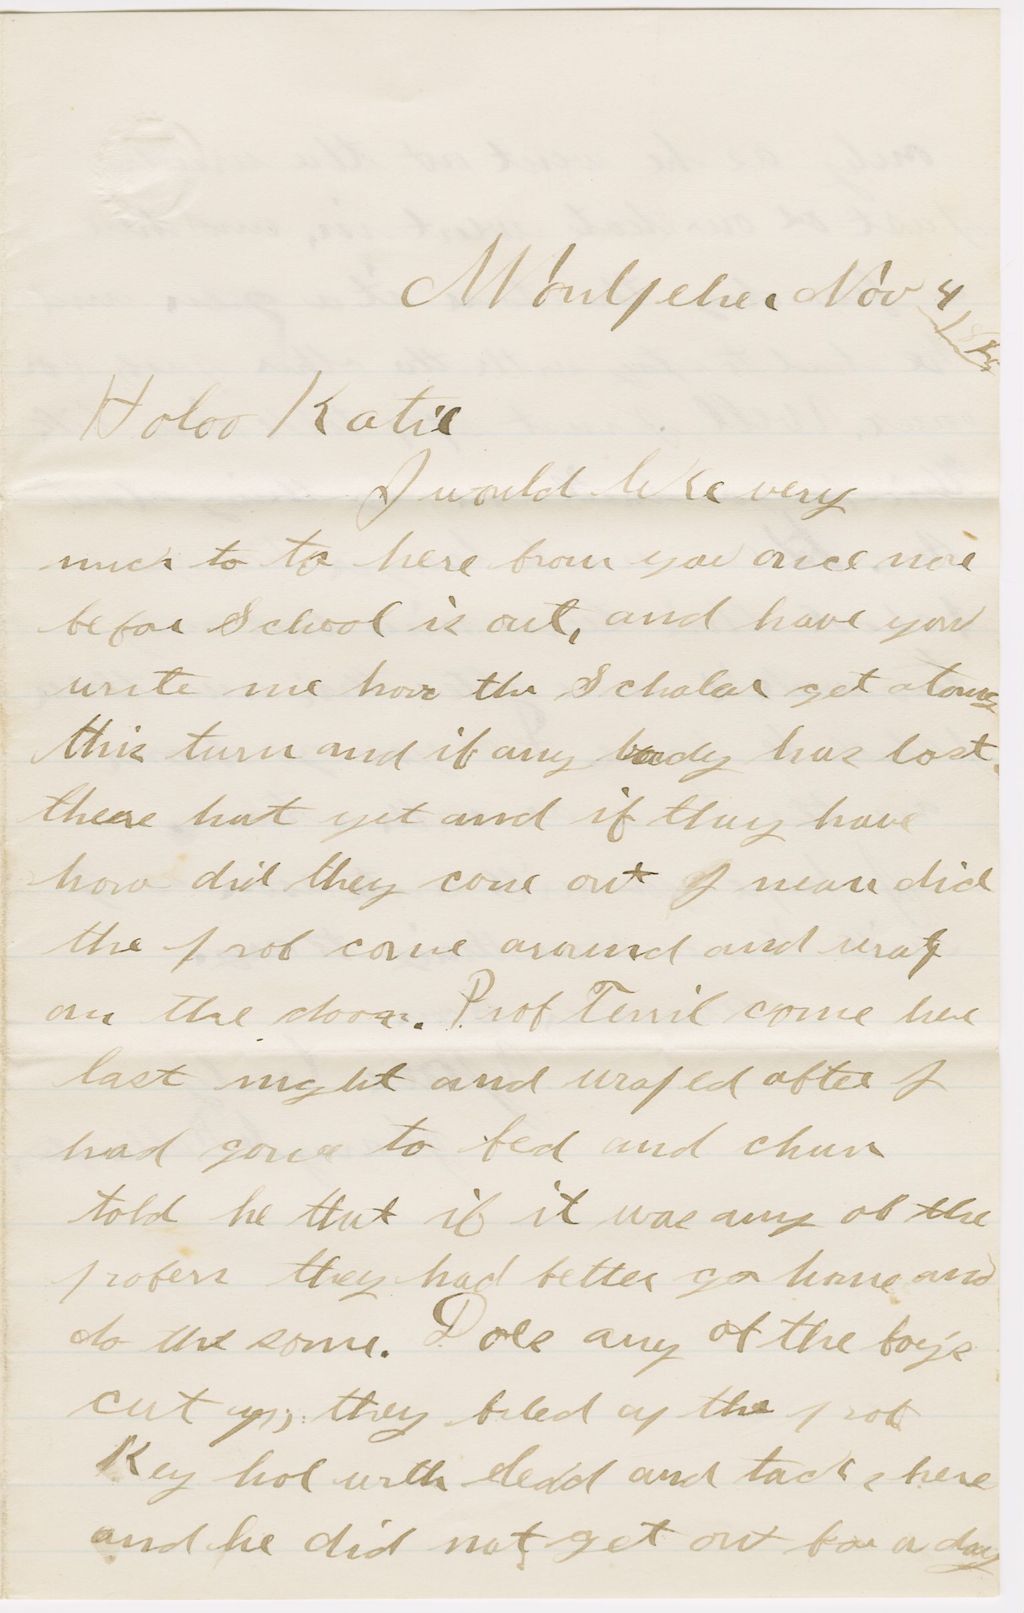 Montpelier Nov 4
Holoo Katie
I would like very
much to to here from you once more
befor School is out, and have you
write me how the Scholar get along
this turn and if any body has lost
there hat yet and if they have
how did they come out I mean did
the prof come around and wrap
on the door. Prof Terril come here
last night and wraped after I
had gone to bed and chum
told he that if it was any of the
profers they had better go home and
do the same. Does any of the boys
cut up, they filed up the prof
Key hol with lead and tacks here
and he did not get out for a day